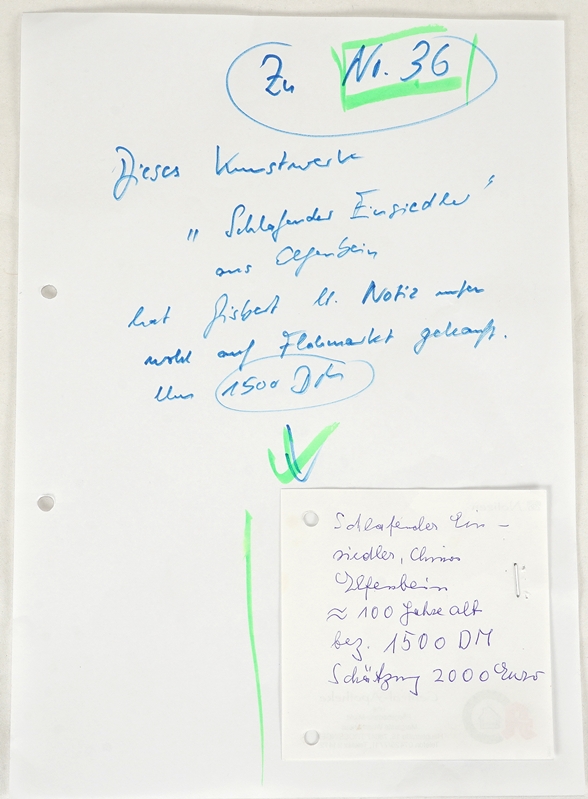 Zu No. 36
Dieses Kunstwerk
"Schlafender Einsiedler"
aus Elfenbein
hat Gisbert lt. Notiz unten
wohl auf Flohmarkt gekauft.
1500 DM
Schlafender Ein-
siedler, China
Elfenbein
≈ 100 Jahre alt
bez. 1500 DM
Schätzung 2000 Euro